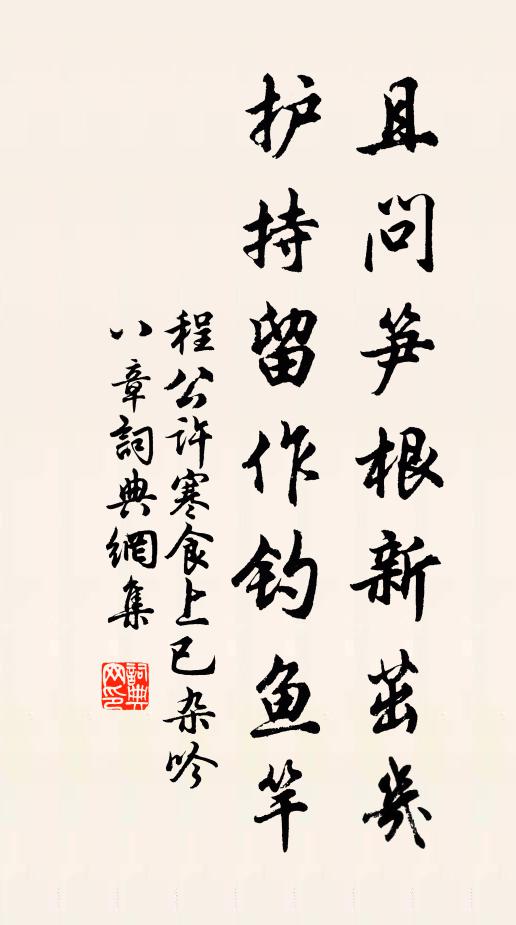 且问笋根新茁几
护持留作钓鱼竿
程公许寒食上巳杂吟
八章詞典網集
詞典网印